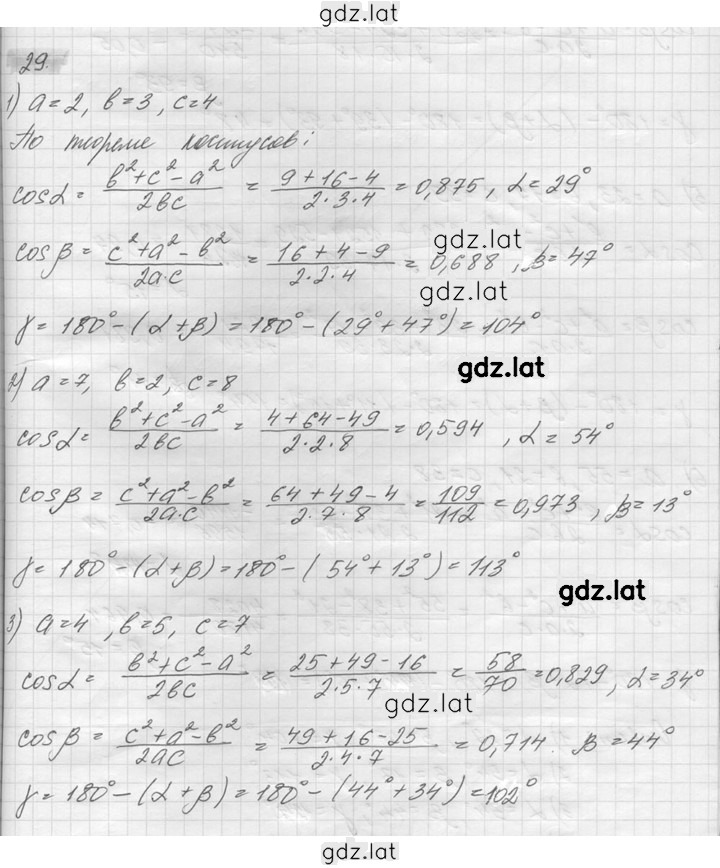 gdz.lat
29.
1) a=2, b=3, c=4
По теореме косинусов:
cosα = (b²+c²-a²)/(2bc) = (9+16-4)/(2·3·4) = 0,875, α=29°
gdz.lat
cosβ = (c²+a²-b²)/(2a·c) = (16+4-9)/(2·2·4) = 0,688, β=47°
gdz.lat
γ = 180°-(α+β) = 180°-(29°+47°) = 104°
gdz.lat
2) a=7, b=2, c=8
cosα = (b²+c²-a²)/(2bc) = (4+64-49)/(2·2·8) = 0,594, α=54°
gdz.lat
cosβ = (c²+a²-b²)/(2a·c) = (64+49-4)/(2·7·8) = 109/112 = 0,973, β=13°
γ = 180°-(α+β) = 180°-(54°+13°) = 113°
gdz.lat
3) a=4, b=5, c=7
cosα = (b²+c²-a²)/(2bc) = (25+49-16)/(2·5·7) = 58/70 = 0,829, α=34°
gdz.lat
cosβ = (c²+a²-b²)/(2ac) = (49+16-25)/(2·4·7) = 0,714. β=44°
γ = 180°-(α+β) = 180°-(44°+34°) = 102°
gdz.lat